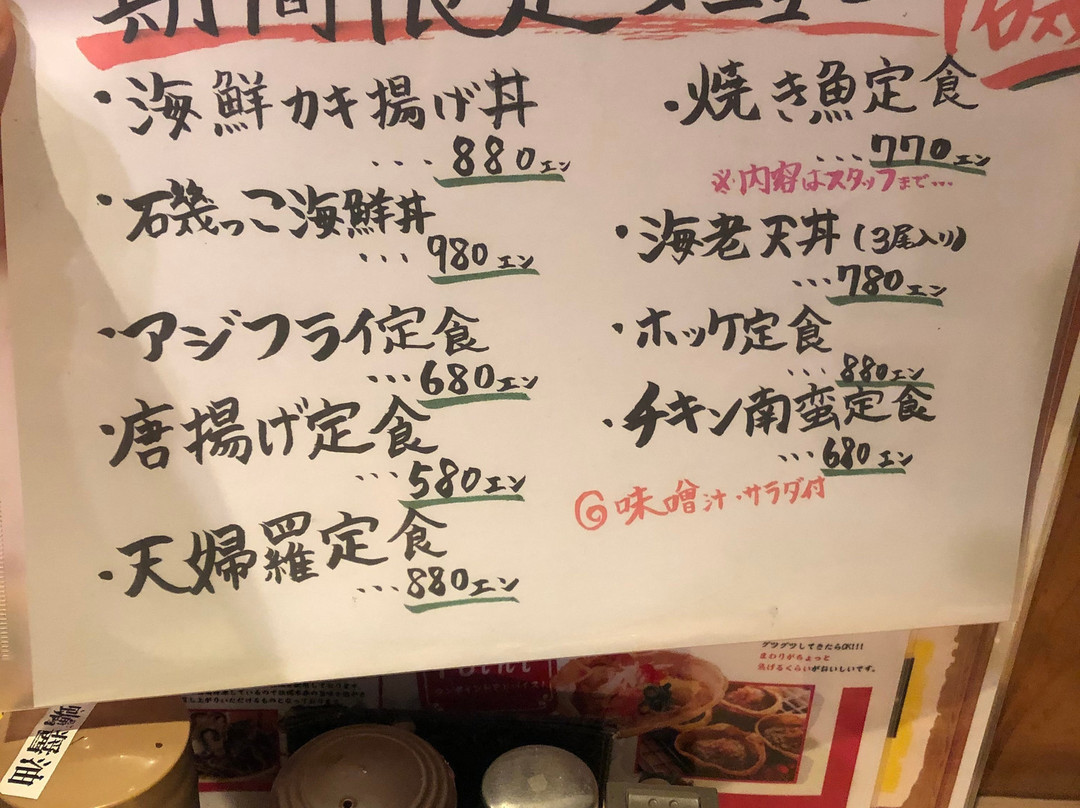 期間限定メニュー
・海鮮カキ揚げ丼
...880エン
・石磯っこ海鮮丼
...980エン
・アジフライ定食
...680エン
・唐揚げ定食
...580エン
・天婦羅定食
...880エン
・焼き魚定食
...770エン
※内容はスタッフまで...
・海老天丼(3尾入り)
...780エン
・ホッケ定食
...880エン
・チキン南蛮定食
...680エン
◎味噌汁・サラダ付
グツグツしてきたらOK!!!
まわりがちょっと
焦げるくらいがおいしいです。
醤油